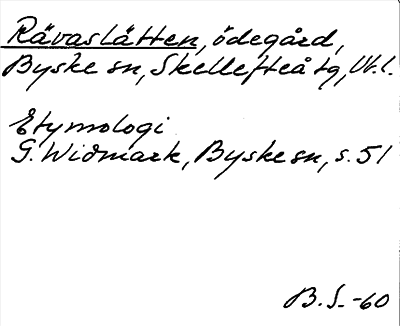 Rävaslåtten, ödegård,
Byske sn, Skellefteå tg, Vb.l.
Etymologi
G. Widmark, Byske sn, s. 51
B. S. -60